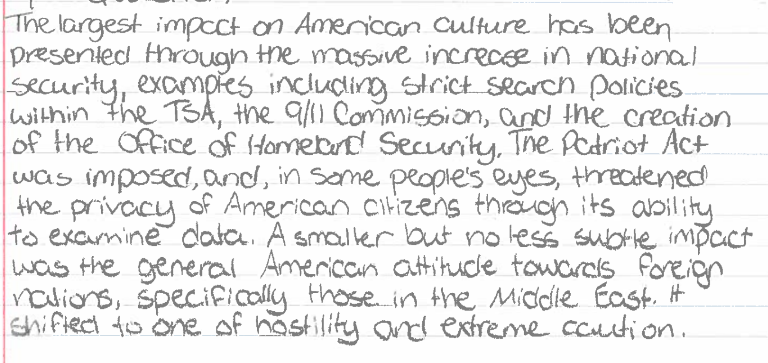 The largest impact on American culture has been
presented through the massive increase in national
security, examples including strict search policies
within the TSA, the 9/11 Commission, and the creation
of the Office of Homeland Security. The Patriot Act
was imposed, and, in some people's eyes, threatened
the privacy of American citizens through its ability
to examine data. A smaller but no less subtle impact
was the general American attitude towards foreign
nations, specifically those in the Middle East. It
shifted to one of hostility and extreme caution.